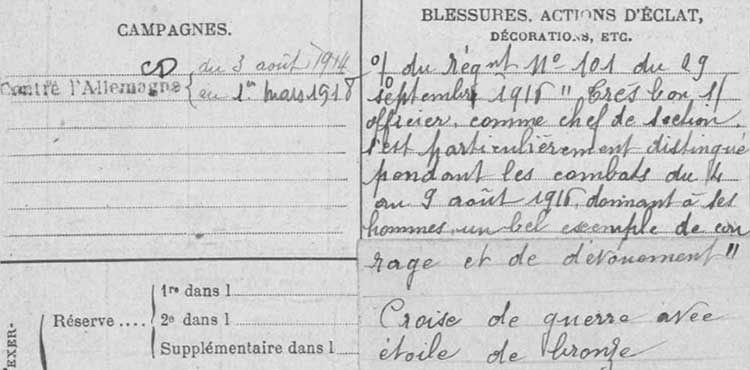 CAMPAGNES.
CD du 3 août 1914
Contre l'Allemagne { au 1er mars 1918
BLESSURES, ACTIONS D'ÉCLAT,
DÉCORATIONS, ETC.
o/ du régnt No 101 du 29
septembre 1916 " Très bon s/
officier, comme chef de section,
s'est particulièrement distingué
pendant les combats du 4
au 9 août 1916, donnant à ses
hommes un bel exemple de cou
rage et de dévouement "
Croise de guerre avec
étoile de bronze
PEXER-
Réserve .... { 1re dans l
2e dans l
Supplémentaire dans l